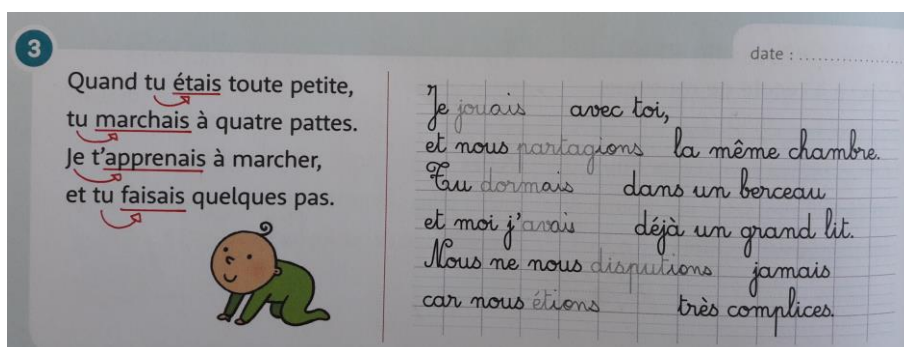 3
Quand tu étais toute petite,
tu marchais à quatre pattes.
Je t'apprenais à marcher,
et tu faisais quelques pas.
date : ....................
Je jouais avec toi,
et nous partagions la même chambre.
Tu dormais dans un berceau
et moi j'avais déjà un grand lit.
Nous ne nous disputions jamais
car nous étions très complices.